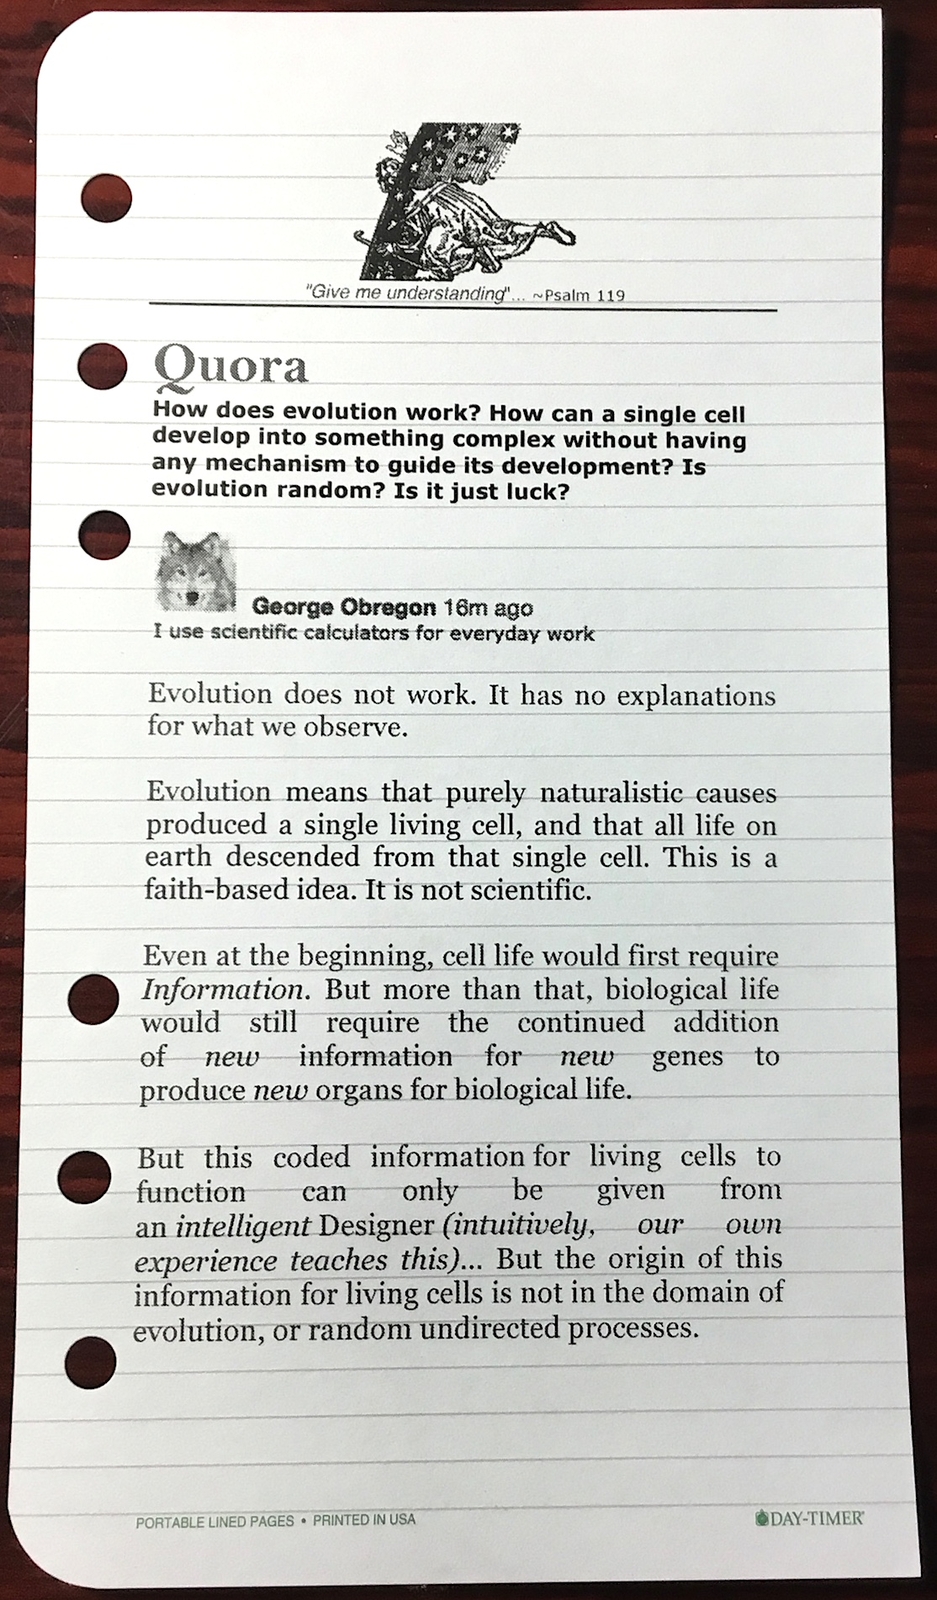 "Give me understanding"... ~Psalm 119
Quora
How does evolution work? How can a single cell
develop into something complex without having
any mechanism to guide its development? Is
evolution random? Is it just luck?
George Obregon 16m ago
I use scientific calculators for everyday work
Evolution does not work. It has no explanations
for what we observe.
Evolution means that purely naturalistic causes
produced a single living cell, and that all life on
earth descended from that single cell. This is a
faith-based idea. It is not scientific.
Even at the beginning, cell life would first require
Information. But more than that, biological life
would still require the continued addition
of new information for new genes to
produce new organs for biological life.
But this coded information for living cells to
function can only be given from
an intelligent Designer (intuitively, our own
experience teaches this)... But the origin of this
information for living cells is not in the domain of
evolution, or random undirected processes.
PORTABLE LINED PAGES • PRINTED IN USA
DAY-TIMER®